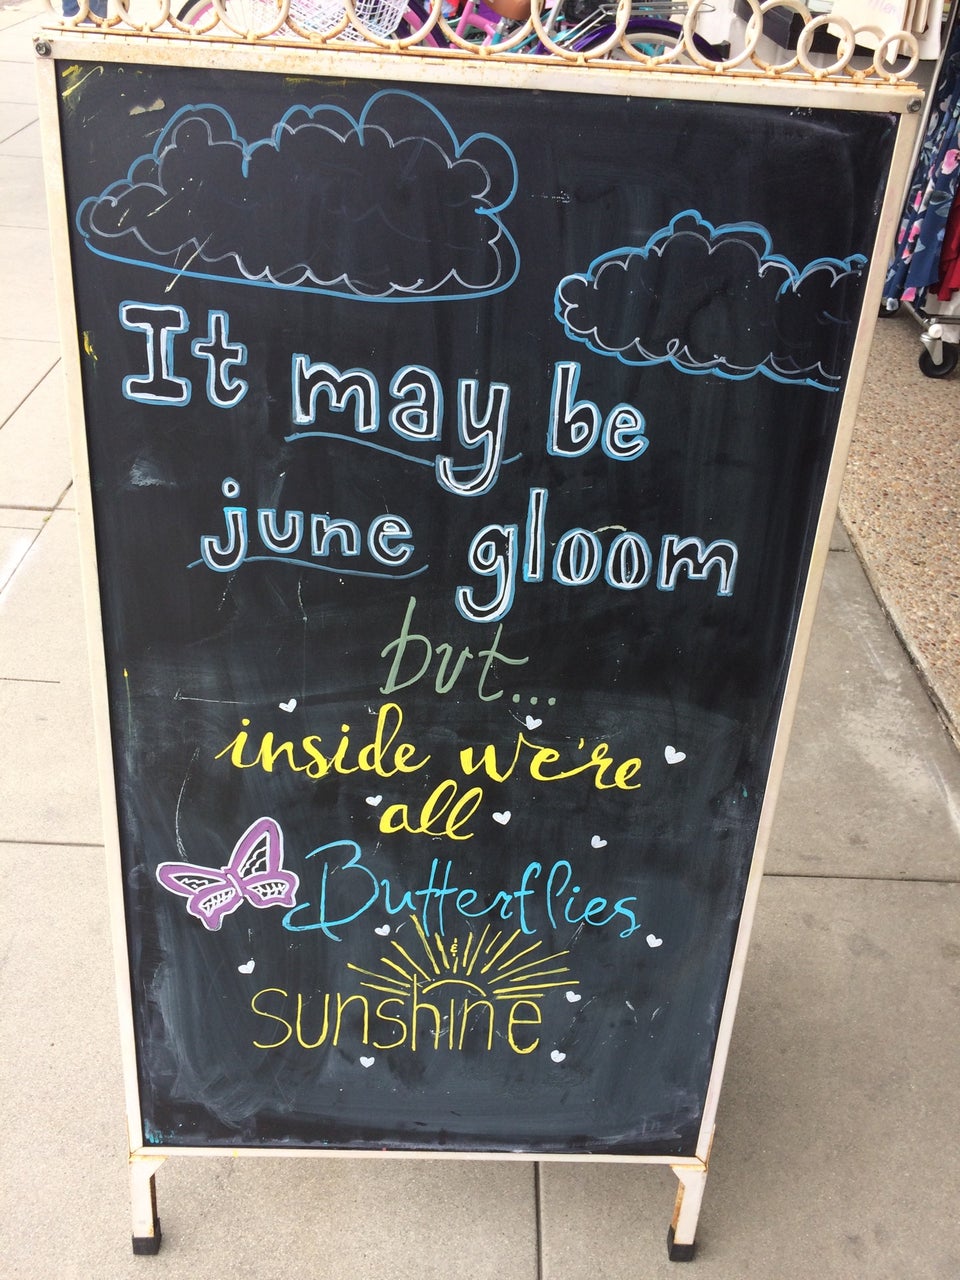 It may be
june gloom
but...
inside we're
all
Butterflies
&
sunshine